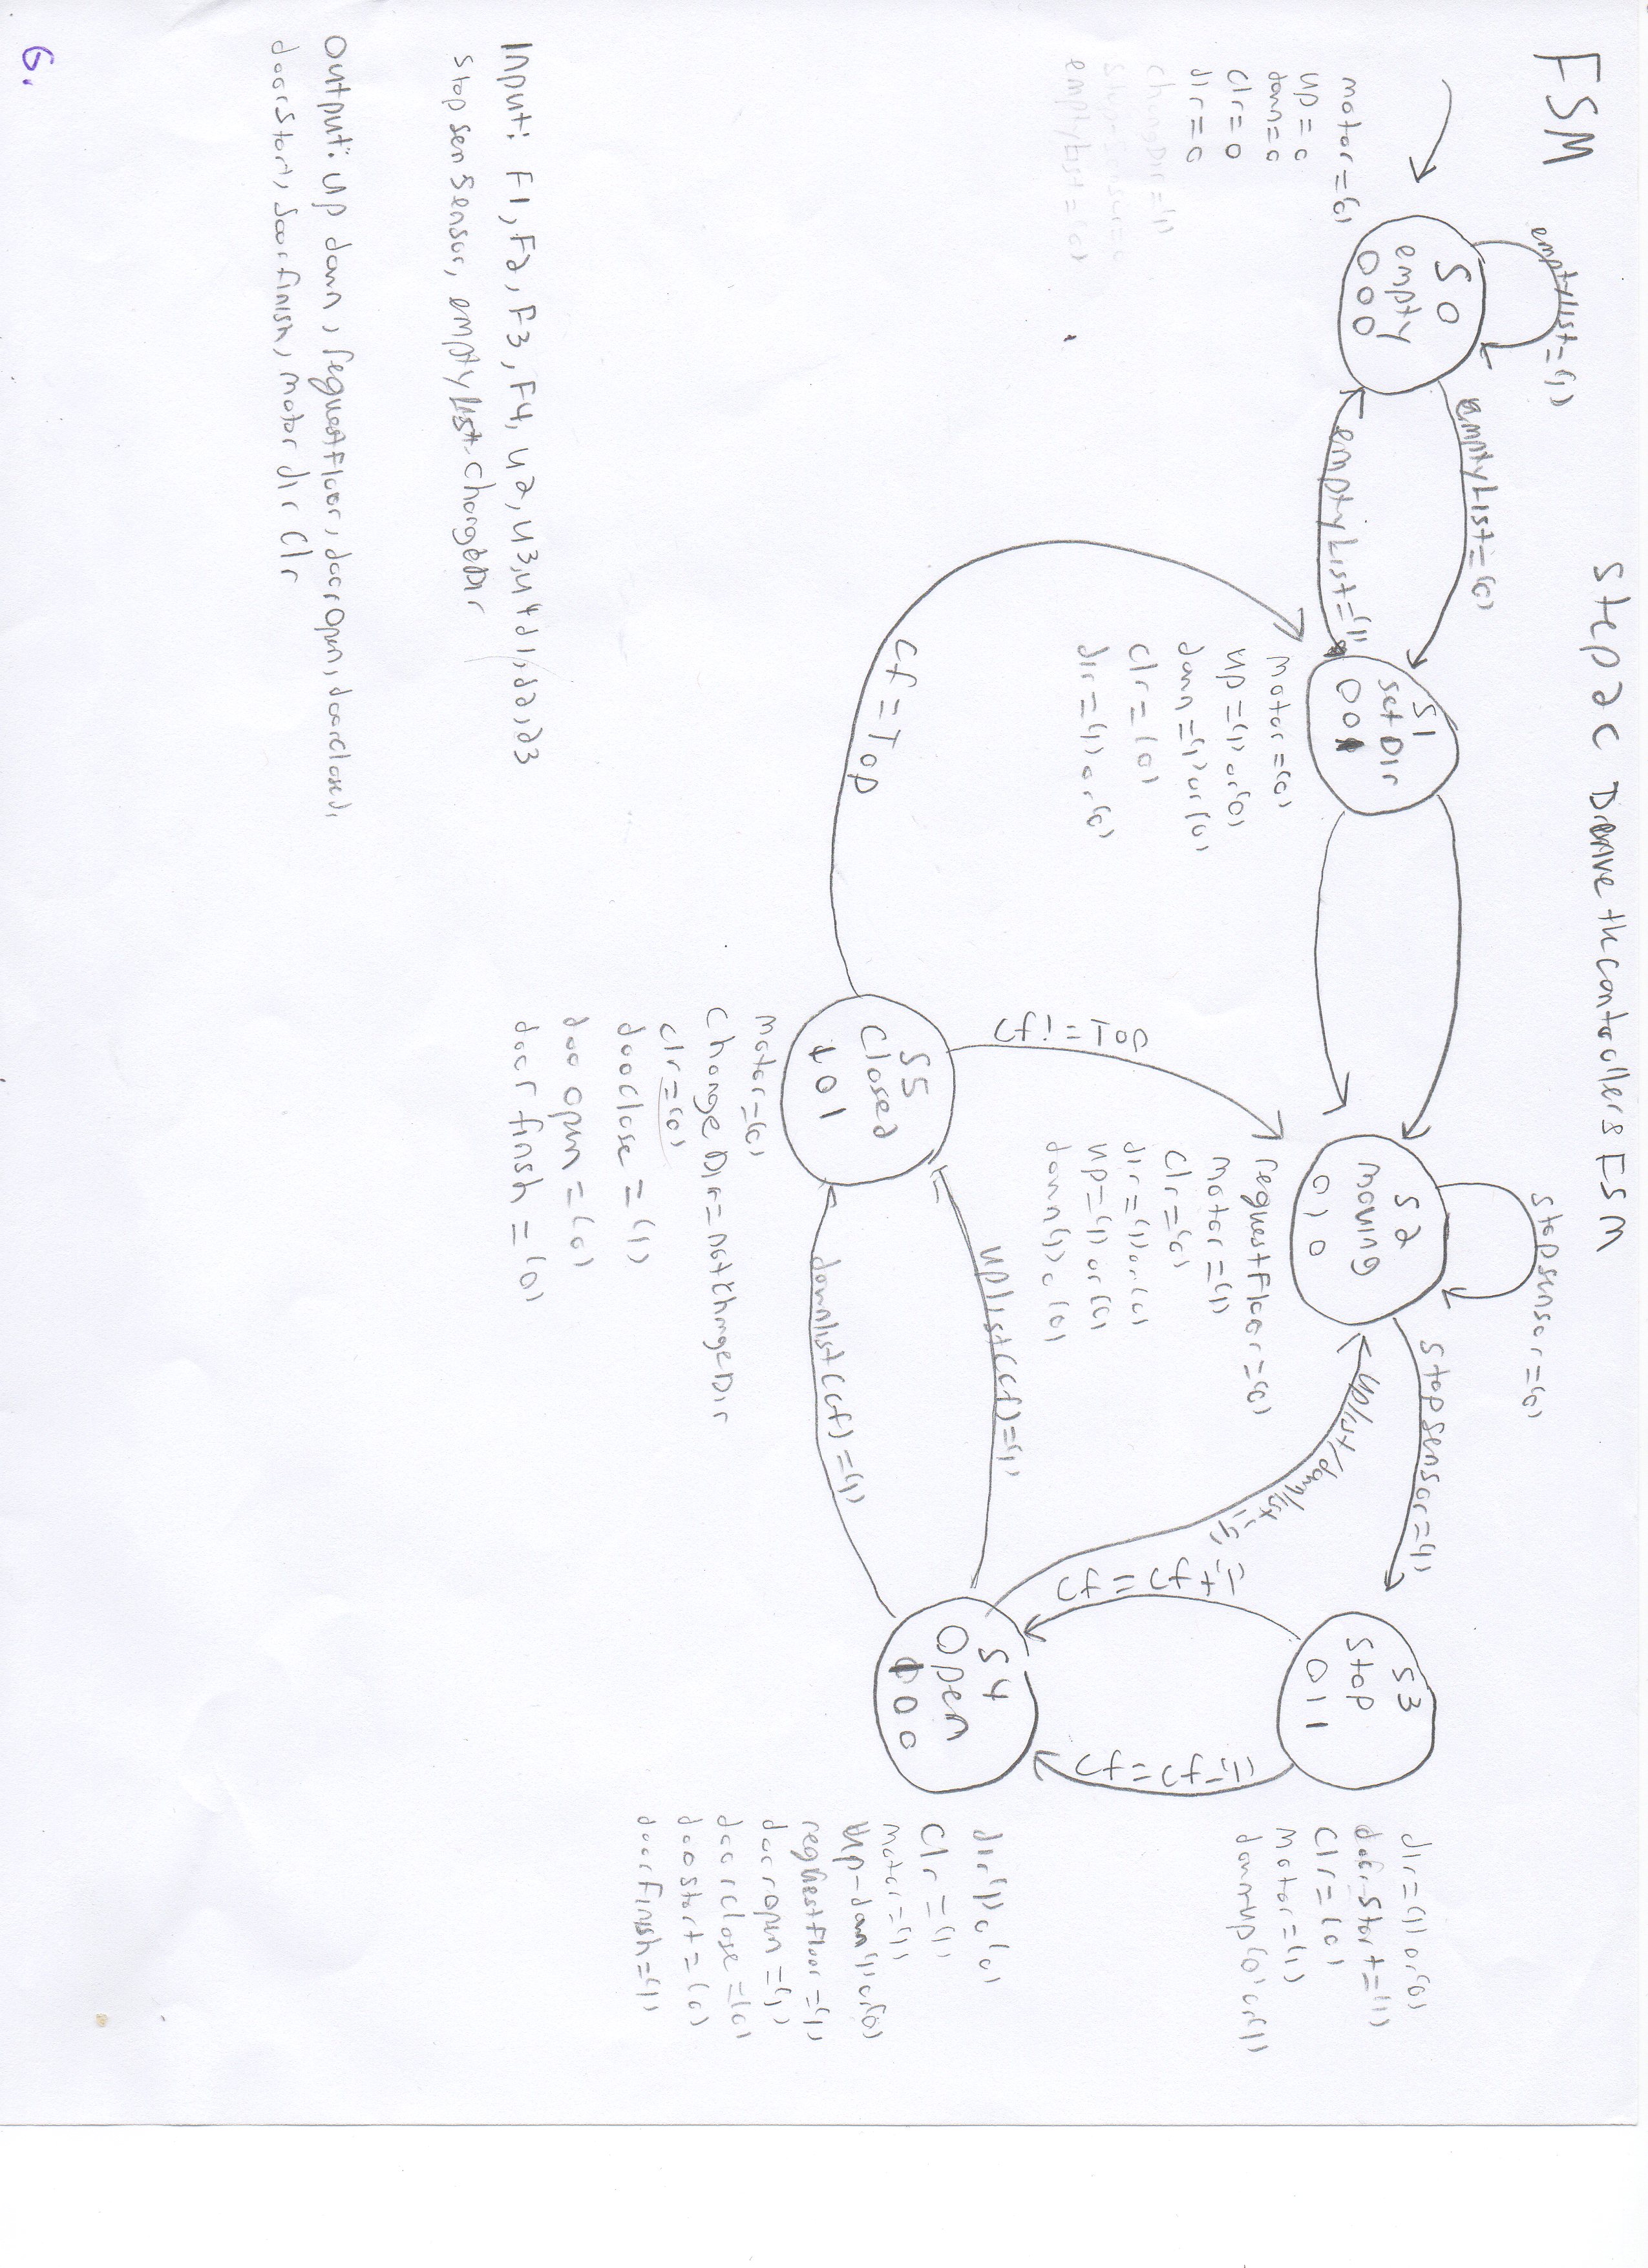 FSM
Step 2c Derive the controllers FSM
emptylist=(1)
S0
empty
000
motor=(0)
up = 0
down=0
clr=0
dir=0
changeDir=(1)
emptyList=(0)
emptyList=(0)
emptyList=(1)
S1
setDir
001
motor=(0)
up=(1) or(0)
down=(1)or(0)
clr=(0)
dir=(1) or(0)
stopsensor=(0)
S2
moving
010
requestFloor=(0)
motor=(1)
clr=(0)
dir=(1)or(0)
up=(1) or(0)
down(1) o(0)
stopsensor=(1)
S3
stop
011
dir=(1)or(0)
door start=(1)
clr=(0)
motor=(1)
down-up(0)or(1)
uplist/downlist
cf = cf+1
cf = cf-1
S4
Open
100
dir(1) o (0)
clr=(1)
motor=(1)
up-down(1)or(0)
requestFloor=(1)
door open=(1)
doorclose=(0)
doostart=(0)
doorfinish=(1)
uplist(cf)=(1)
downlist(cf)=(1)
S5
Closed
101
motor=(0)
change Dir=notchangeDir
clr=(0)
dooclose=(1)
doo open=(0)
door finsh=(0)
cf = Top
cf != Top
Input: F1, F2, F3, F4, u2, u3, u4 d1, d2, d3
stopsensensor, emptylist changeDir
Output: up down, requestFloor, door open, doorclosed,
doorstart, doorfinish, motor dir clr
6.